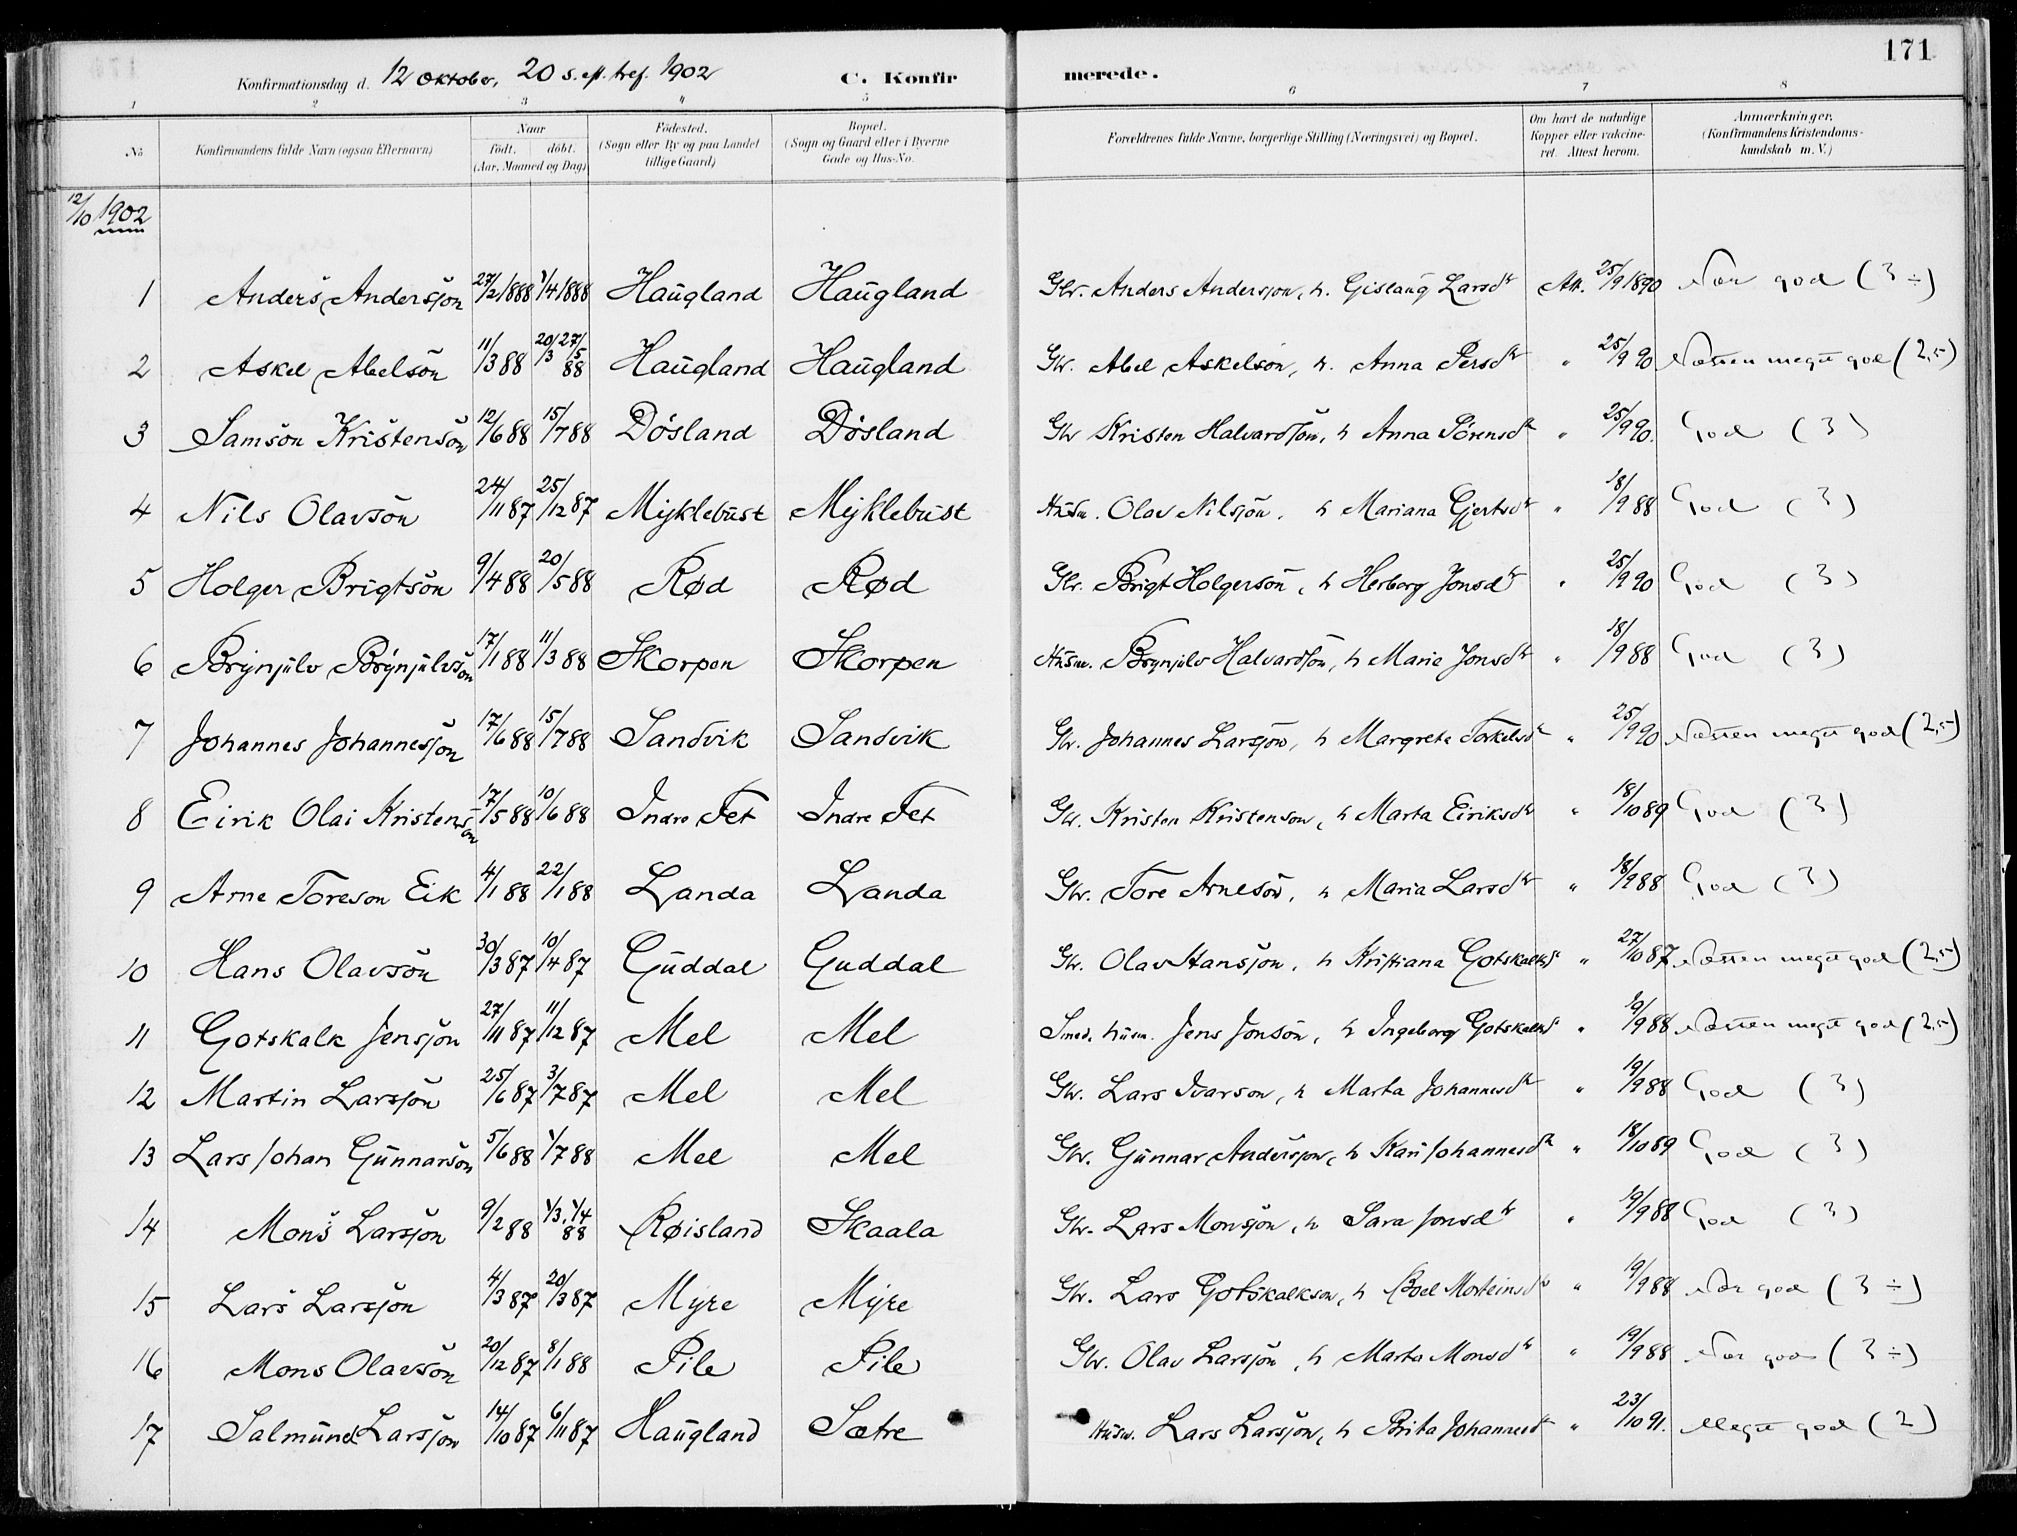 171
Konfirmationsdag d. 12 Oktober, 20 s. eft. tref. 1902 C. Konfirmerede.
1 2 3 4 5 6 7 8
No Konfirmandens fulde Navn (ogsaa Efternavn) Naar født. døbt. (Aar, Maaned og Dag) Fødested. (Sogn eller By og paa Landet tillige Gaard) Bopæl. (Sogn og Gaard eller i Byerne Gade og Hus-No. Forældrenes fulde Navne, borgerlige Stilling (Næringsvei) og Bopæl. Om havt de naturlige Kopper eller vakcineret. Attest herom. Anmærkninger, (Konfirmandens Kristendomskundskab m. V.)
12/10 1902
1 Anders Andersson 27/2 1888 1/4 1888 Haugland Haugland Gbr. Anders Andersson, h. Gislaug Larsdtr Att. 25/9 1890 Nær god (3 ÷)
2 Askel Abelson 11/3 88 20/3 27/5 88 Haugland Haugland Gbr. Abel Askelson, h. Anna Persdtr " 25/9 90 Næsten meget god (2,5)
3 Samson Kristenson 12/6 88 15/7 88 Døsland Døsland Gbr Kristen Halvardson, h Anna Sørensdtr " 25/9 90. God (3)
4 Nils Olavson 24/11 87 25/12 87 Myklebust Myklebust Husm. Olav Nilsson, h Mariana Gjertsdtr " 18/9 88 God (3)
5 Holger Brigtson 9/4 88 20/5 88 Rød Rød Gbr. Brigt Holgerson, h Herborg Jonsdtr " 25/9 90 God (3)
6 Brynjulv Brynjulvson 17/1 88 11/3 88 Skorpen Skorpen Husm. Brynjulv Halvardson, h Marie Jonsdtr " 18/9 88 God (3)
7 Johannes Johannesson 17/6 88 15/7 88 Sandvik Sandvik Gbr. Johannes Larsson, h Margreta Torkelsdtr " 25/9 90 Næsten meget god (2,5)
8 Eirik Olai Kristenson 17/5 88 10/6 88 Indre Fet Indre Fet Gbr. Kristen Kristenson, h Marta Eiriksdtr " 18/10 89 God (3)
9 Arne Toreson Eik 4/1 88 22/1 88 Landa Landa Gbr. Tore Arneson, h Maria Larsdtr " 18/9 88 God (3)
10 Hans Olavson 30/3 87 10/4 87 Guddal Guddal Gbr. Olav Hansson, h Kristiana Gotskalksd " 27/10 87 Næsten meget god (2,5)
11 Gotskalk Jensson 27/11 87 11/12 87 Mel Mel Smed. husm. Jens Jonson, h Ingeborg Gotskalksd " 19/9 88 Næsten meget god (2,5)
12 Martin Larsson 25/6 87 3/7 87 Mel Mel Gbr. Lars Ivarson, h Marta Johannesdtr " 19/9 88 God (3)
13 Lars Johan Gunnarson 5/6 88 1/7 88 Mel Mel Gbr. Gunnar Andersson, h Kari Johannesdtr " 18/10 89 God (3)
14 Mons Larsson 9/2 88 1/3, 1/4 88 Røisland Skaala Gbr. Lars Monsson, h Sara Jonsdtr " 19/9 88 God (3)
15 Lars Larsson 4/3 87 20/3 87 Myre Myre Gbr. Lars Gotskalkson, h Boel Morteinsdtr " 19/9 88 Nær god (3 ÷)
16 Mons Olavson 20/12 87 8/1 88 Pile Pile Gbr. Olav Larsson, h Marta Monsdtr " 19/9 88 Nær god (3 ÷)
17 Salmund Larsson 14/10 87 6/11 87 Haugland Sætre Husm. Lars Larsson, h Brita Johannesdtr " 23/10 91. Meget god (2)